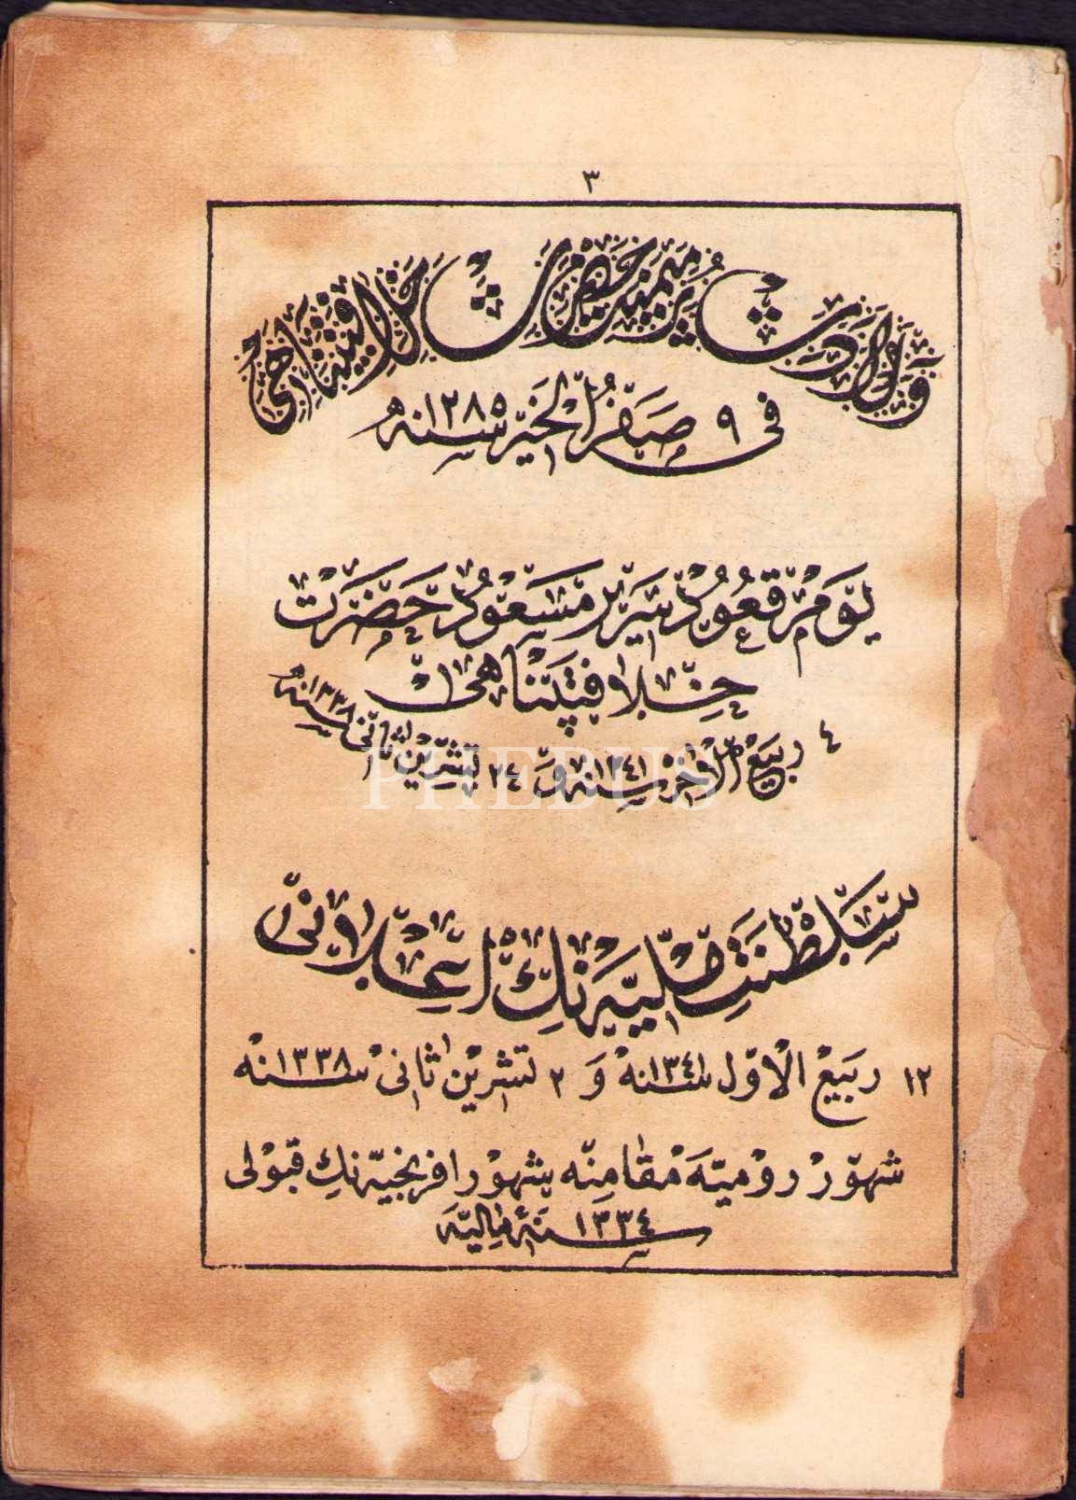 ٣
ولادت پر ميمنت حضرت خلافتپناهى
فى ٩ صفر الخير سنه ١٢٨٥
يوم قعود سرير مسعود حضرت
خلافتپناهى
٤ ربيع الآخر سنه ١٣٤١ و ٢٤ تشرين ثانى سنه ١٣٣٨
PHEBUS
سلطنت مليه نك اعلانى
١٢ ربيع الاول سنه ١٣٤١ و ٢ تشرين ثانى سنه ١٣٣٨
شهور روميه مقامنه شهور افرنجيه نك قبولى
سنۀ ماليه ١٣٣٤